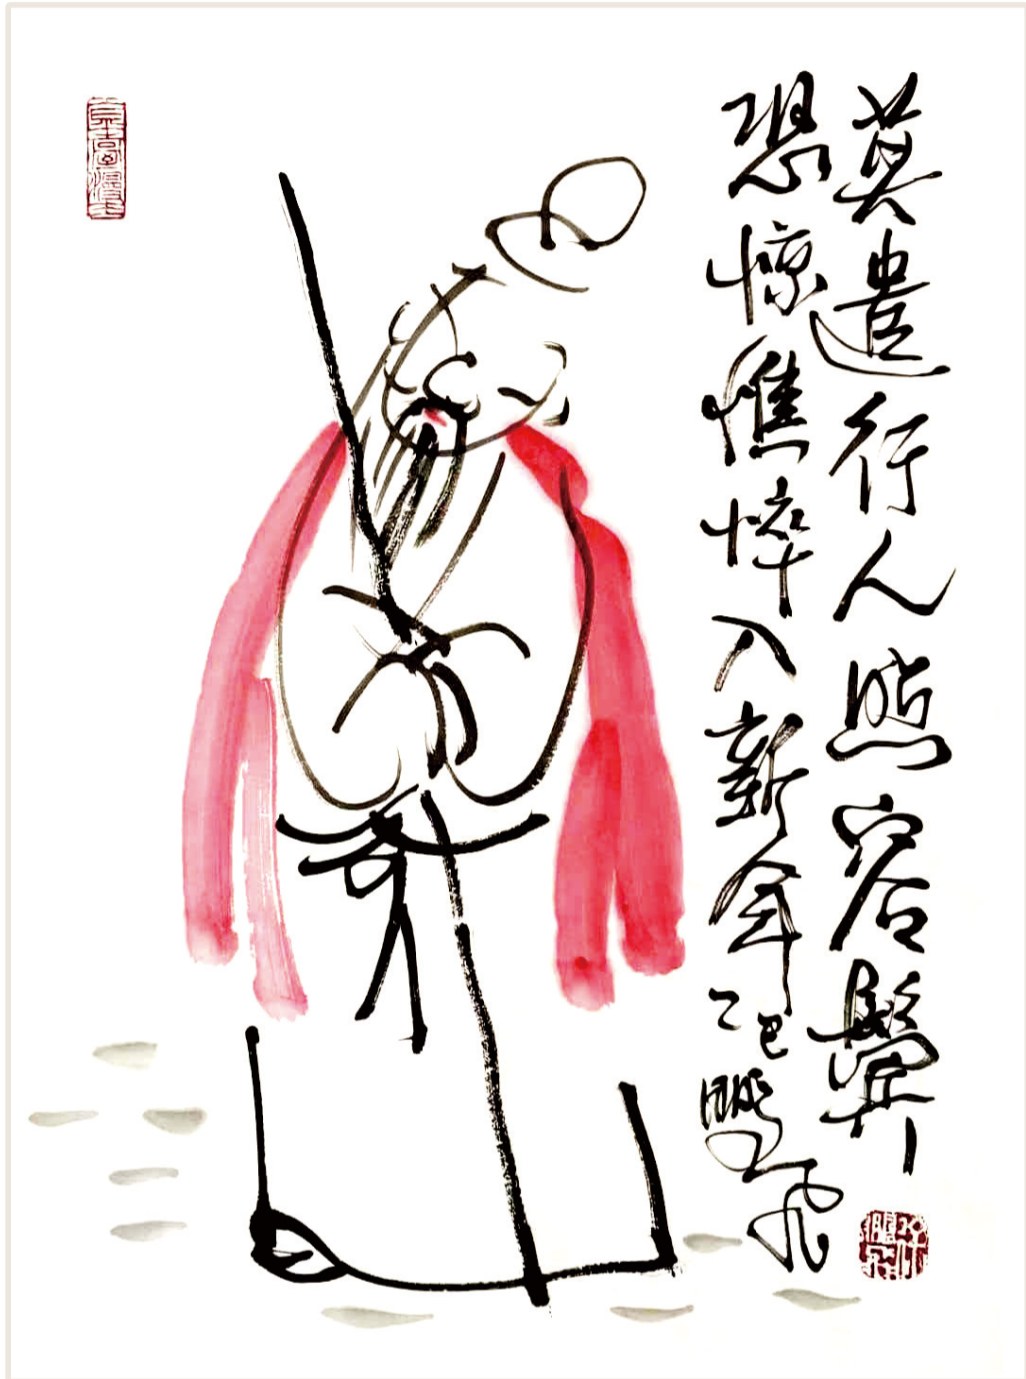 莫遣行人照容鬓
恐惊憔悴入新年
乙巳 鹏飞